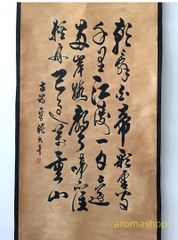 朝辭白帝彩雲間
千里江陵一日還
兩岸猿聲啼不住
輕舟已過萬重山
aromashop